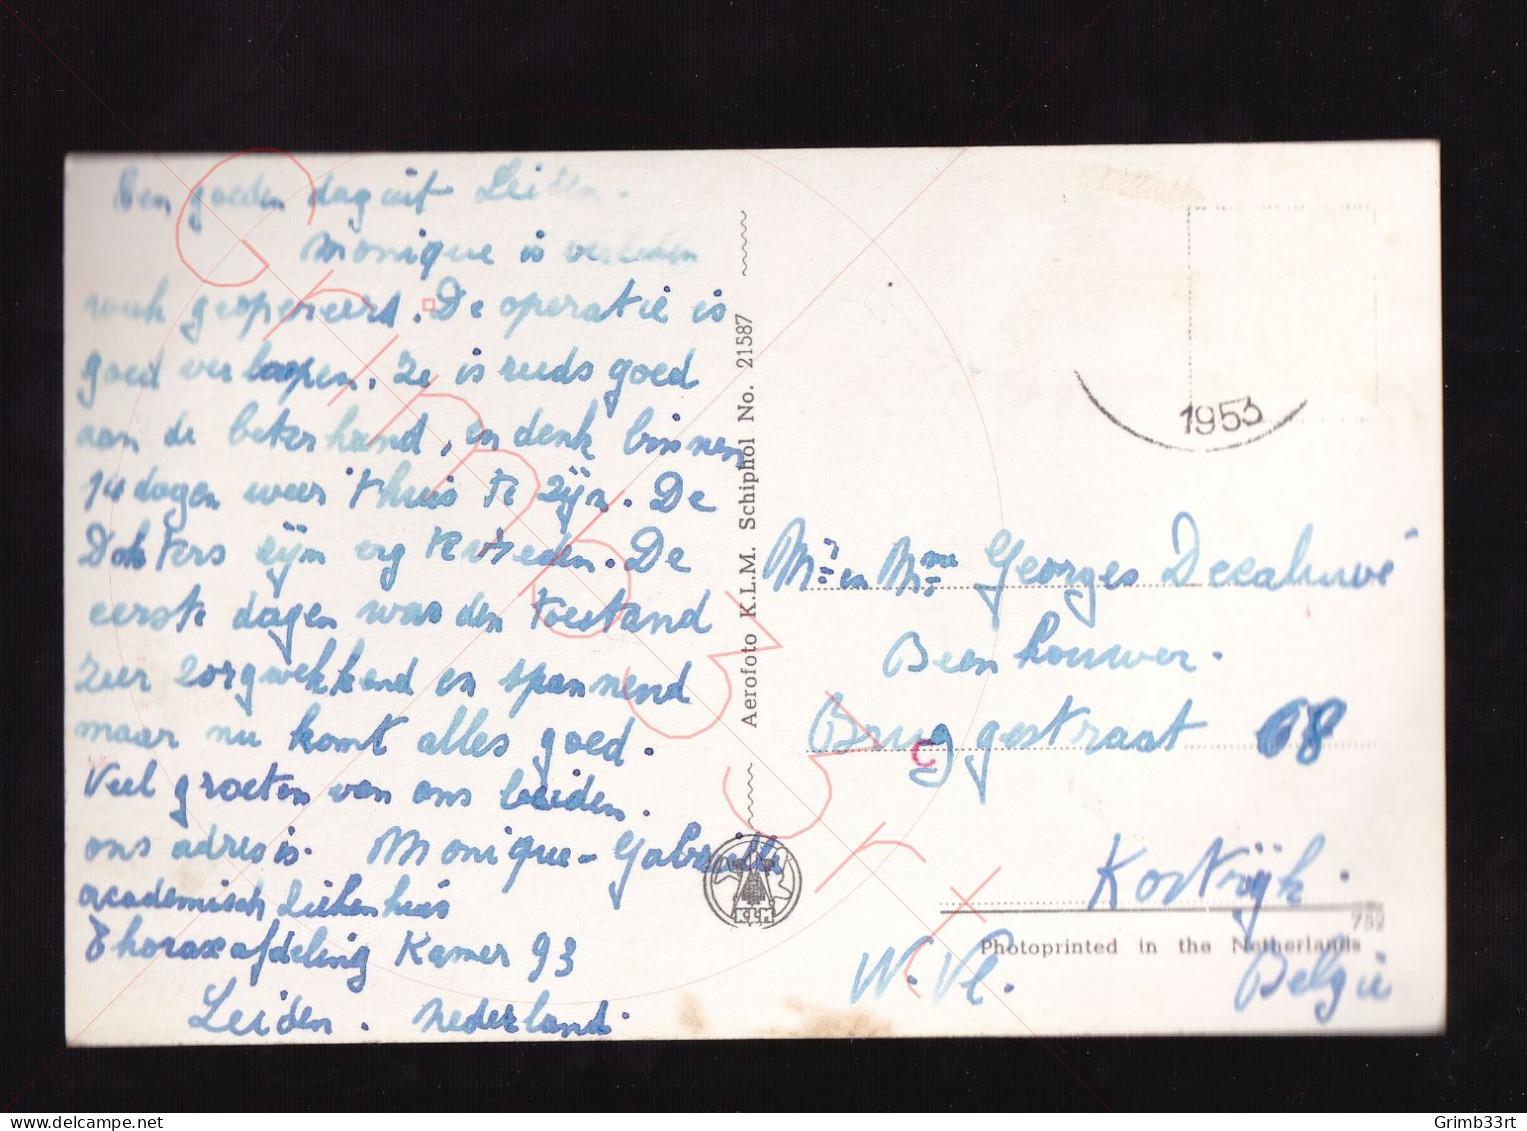 Een goeden dag uit Leiden.
Monique is verleden
week geopereerd. De operatie is
goed verlopen. Ze is reeds goed
aan de beterhand, en denk binnen
14 dagen weer thuis te zijn. De
Dokters zijn erg tevreden. De
eerste dagen was den toestand
zeer zorgwekkend en spannend
maar nu komt alles goed.
Veel groeten van ons beiden.
ons adres is. Monique - Gabrielle
academisch Ziekenhuis
Thoraxafdeling Kamer 93
Leiden. Nederland.
Aerofoto K.L.M. Schiphol No. 21587
KLM
1953
Mr. en Mme Georges
Beenhouwer.
Bruggestraat 68
C
Kortrijk.
752
Photoprinted in the Netherlands
W. Vl. België
Grimb33rt
delcampe.net
Grimb33rt